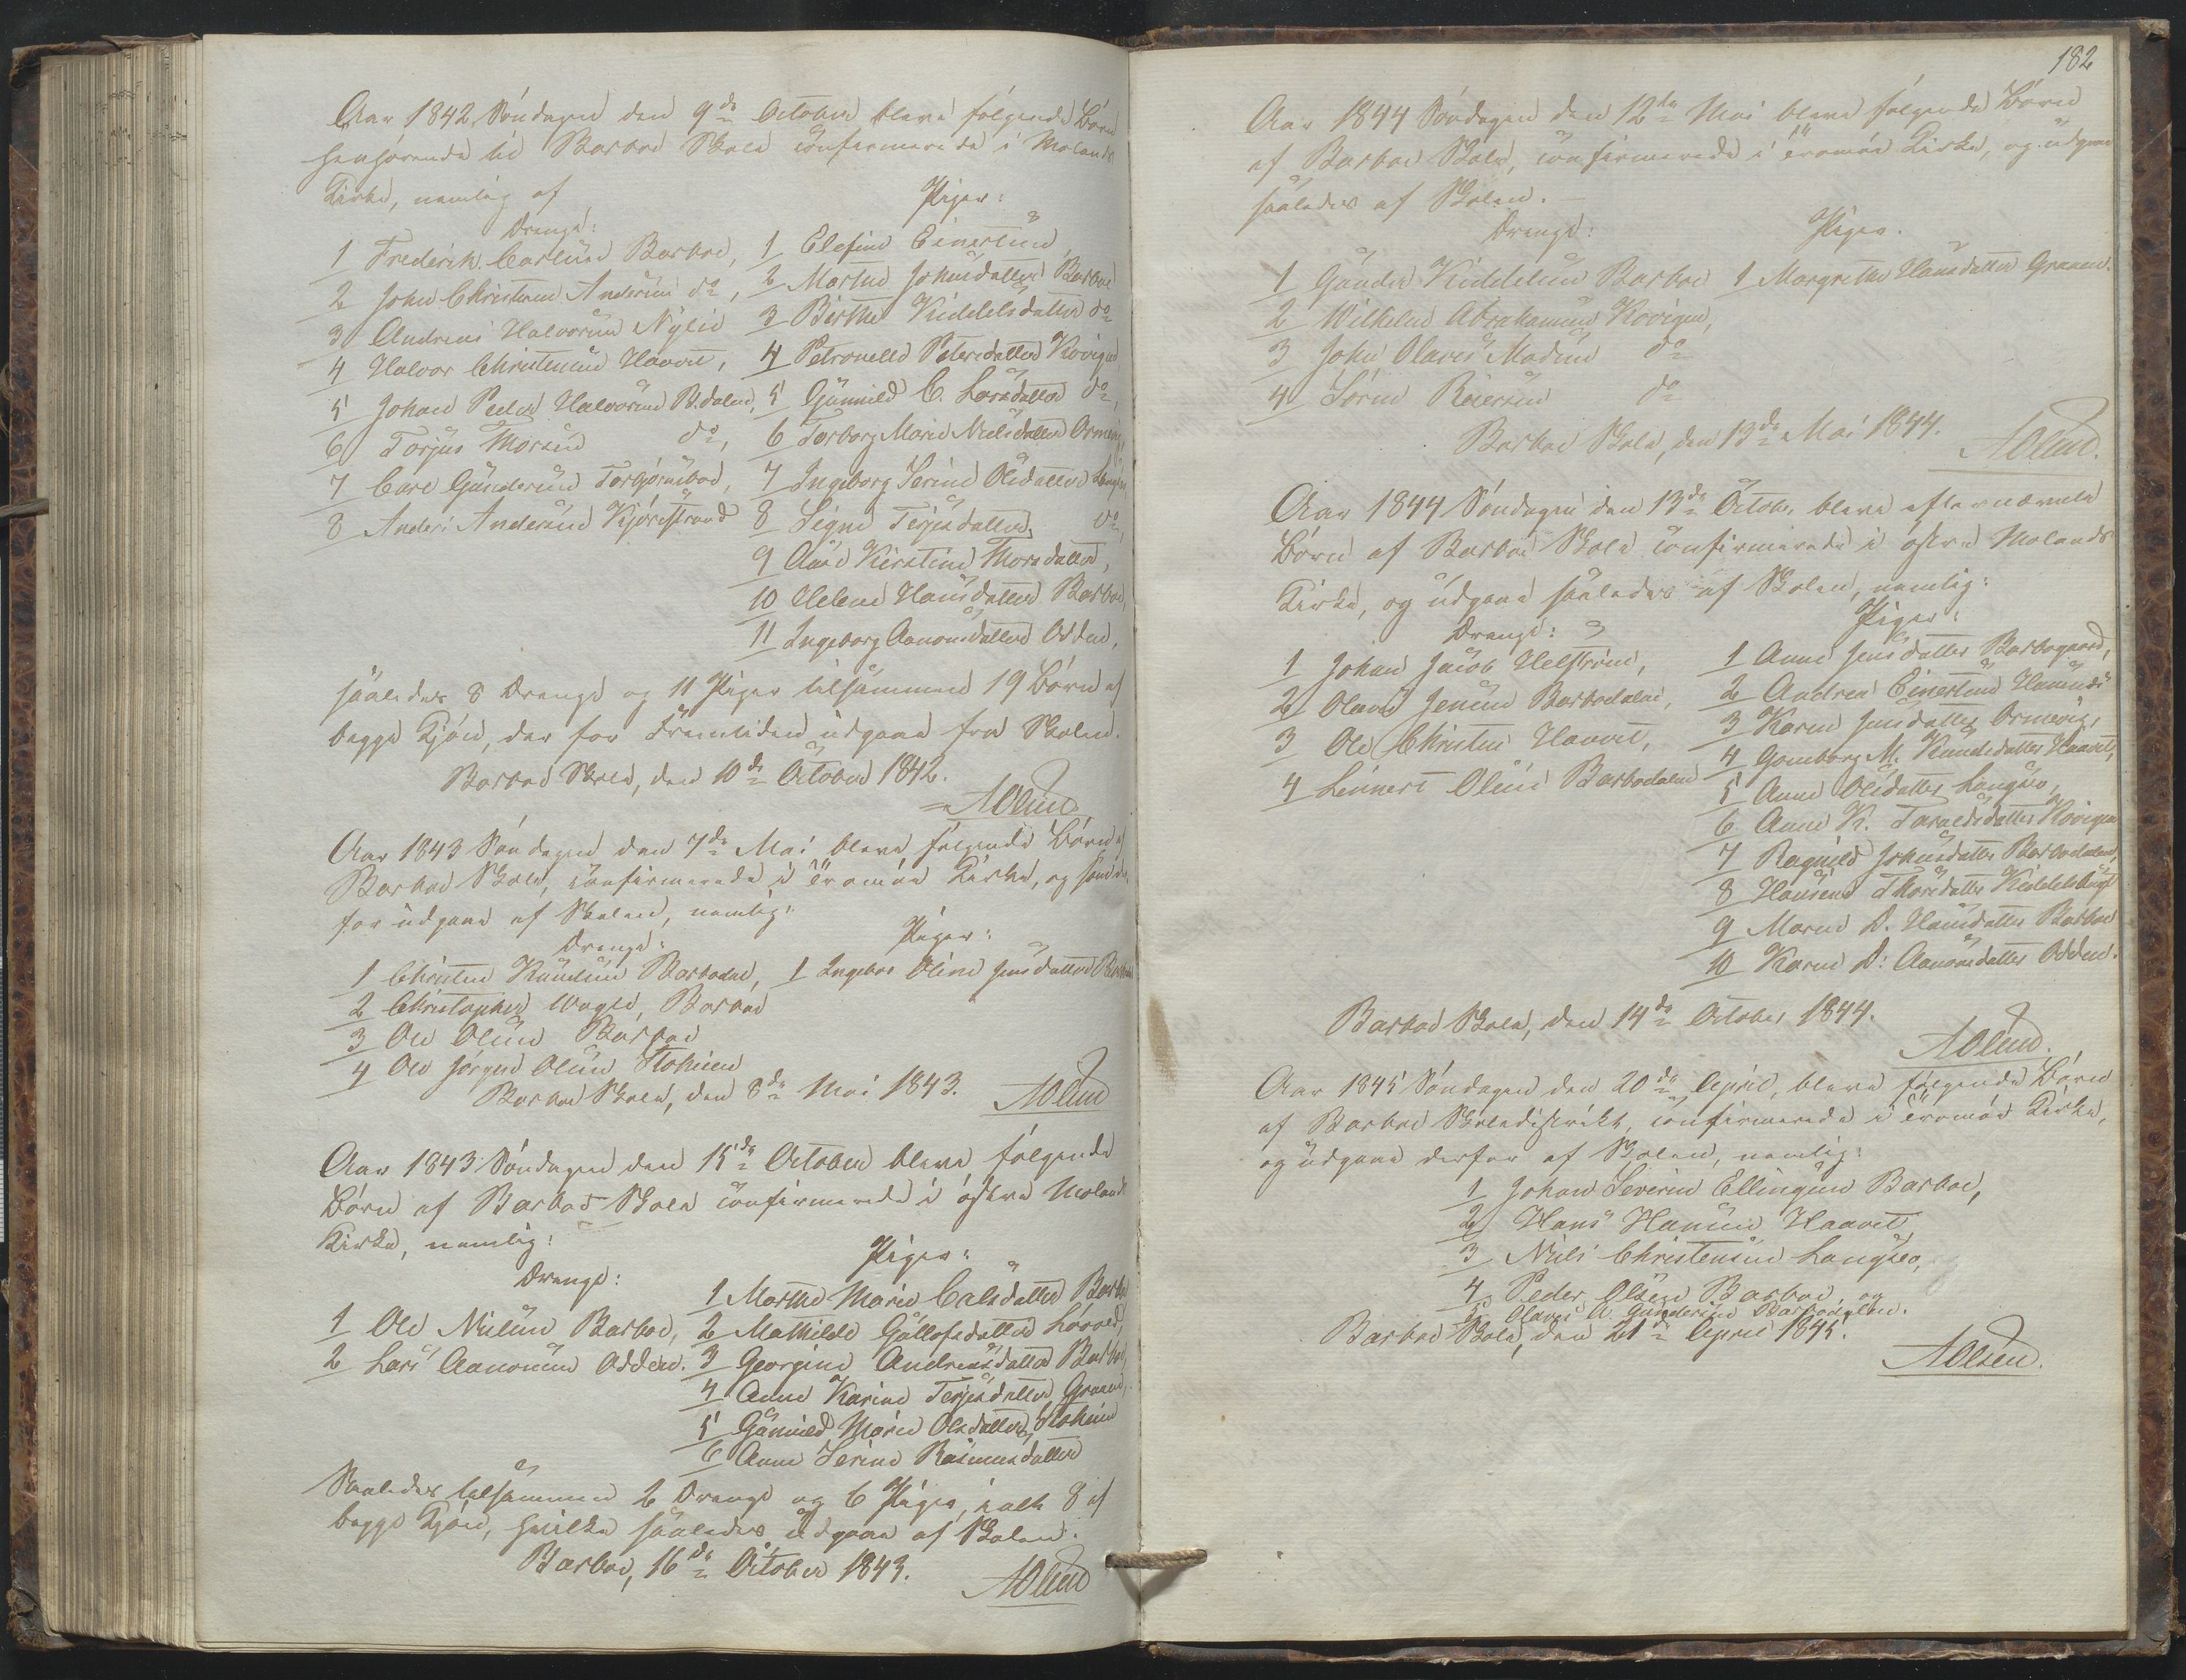 Aar 1842 Søndagen den 9de October bleve følgende Børn
henhørende til Barboe Skole confirmerede i Molands
Kirke, nemlig af
Drenge:
1 Frederik Carlsen Barboe,
2 John Christian Andersen do,
3 Andreas Halvorsen Nylie
4 Halvor Christensen Haavet,
5 Johan Peder Halvorsen B.dalen,
6 Torjus Thorsen do,
7 Carl Gundersen Torbjørnsbod,
8 Anders Andersen Kjørrstrand
Piger:
1 Elefine Einersen
2 Marthe Johnsdatter Barboe
3 Birthe Kiddelsdatter do
4 Petronelle Petersdatter Kovigen
5 Gunnild C. Larsdatter do,
6 Torborg Marie Nielsdatter Ormevig
7 Ingeborg Serine Olsdatter Langsæ
8 Signe Terjesdatter do,
9 Aase Kirstine Thorsdatter,
10 Helene Hansdatter Barboe,
11 Ingeborg Aanonsdatter Odden.
saaledes 8 Drenge og 11 Piger tilsammen 19 Børn af
begge Kjøn, der for Fremtiden udgaae fra Skolen.
Barboe Skole, den 10de October 1842.
AOlsen
Aar 1843 Søndagen den 7de Mai bleve følgende Børn af
Barboe Skole, confirmerede i Tromøe Kirke, og
for udgaae af Skolen, nemlig:
Drenge:
1 Christen Knudsen Barbodal,
2 Christopher Wagle, Barboe
3 Ole Olsen Barboe
4 Ole Jørgen Olsen Stohuen
Piger:
1 Ingebor Oline Jensdatter Barboe
Barboe Skole, den 8de Mai 1843.
AOlsen
Aar 1843 Søndagen den 15de October bleve følgende
Børn af Barboe Skole confirmerede i østre Molands
Kirke, nemlig:
Drenge:
1 Ole Nielsen Barboe,
2 Lars Aanonsen Odden.
Piger:
1 Marthe Marie Calsdatter Barboe
2 Mathilde Gullofsdatter Løvold,
3 Georgine Andreasdatter Barboe,
4 Anne Karine Terjesdatter Graaen,
5 Gunnild Marie Olsdatter, Stohuen
6 Anne Serine Rasmusdatter
Saaledes tilsammen 2 Drenge og 6 Piger, i alt 8 af
begge Kjøn, hvilke saaledes udgaae af Skolen.
Barboe, 16de October 1843.
AOlsen
182
Aar 1844 Søndagen den 12te Mai bleve følgende Børn
af Barboe Skole, confirmerede i Tromøe Kirke, og udgaae
saaledes af Skolen.
Drenge:
1 Gunder Kiddelsen Barboe
2 Wilhelm Abrahamsen Kovigen,
3 John Olaves Madsen do
4 Søren Reiersen do
Piger.
1 Margrethe Hansdatter Graaen.
Barboe Skole, den 13de Mai 1844.
AOlsen.
Aar 1844 Søndagen den 13de Octobr bleve efternævnte
Børn af Barboe Skole confirmerede i østre Molands
Kirke, og udgaae saaledes af Skolen, nemlig:
Drenge:
1 Johan Jacob Helstrøm,
2 Olaves Jensen Barbodalen,
3 Ole Christen Haavet,
4 Linnert Olsen Barbodalen
Piger:
1 Anne Jensdatter Barbogaard,
2 Andrea Einersen
3 Karen Jensdatter Ormevig,
4 Gomborg M. Knudsdatter Haavet,
5 Anne Olsdatter Langsæ,
6 Anne K. Taraldsdatter Kovigen
7 Ragnild Johnsdatter Barbodalen,
8 Hansine Thorsdatter
9 Maren D. Hansdatter Barboe
10 Karen D: Aanonsdatter Odden.
Barboe Skole, den 14de October 1844.
AOlsen.
Aar 1845 Søndagen den 20de April, bleve følgende Børn
af Barboe Skoledistrikt, confirmerede i Tromøe Kirke,
og udgaae derfor af Skolen, nemlig:
1 Johan Severin Ellingsen Barboe,
2 Hans Hansen Haavet
3 Niels Christensen Langsæ,
4 Peder Olsen Barboe, og
5 Olaves A. Gundersen Barbodalen.
Barboe Skole, den 21de April 1845.
AOlsen.